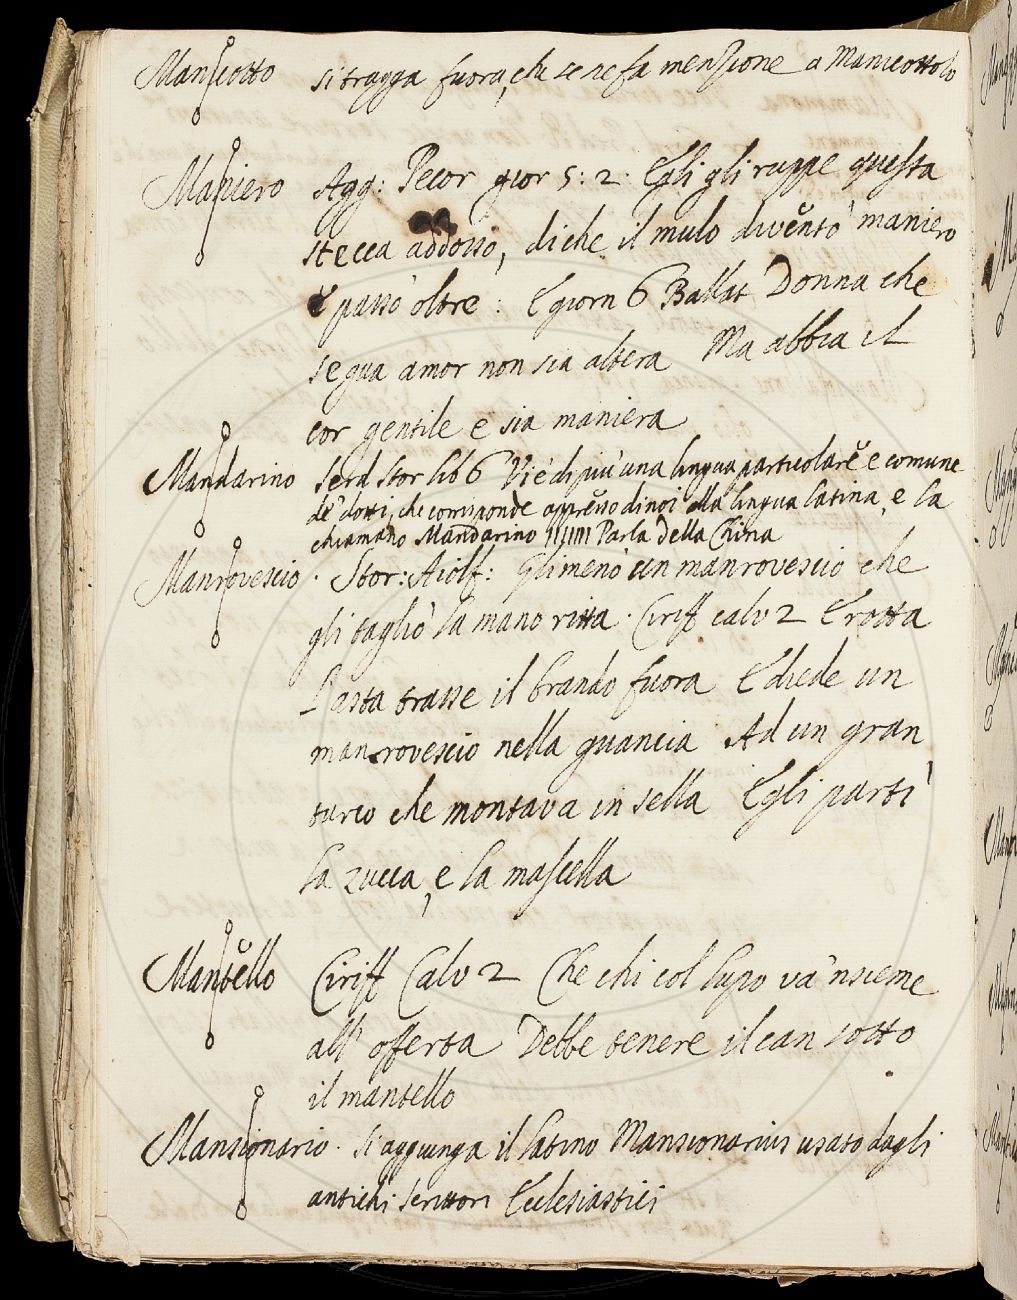 Manicotto si tragga fuora, che se ne fa menzione a Manicottolo
Maniero Agg: Pecor gior 5: 2. Egli gli ruppe questa
stecca addosso, di che il mulo diventò maniero
e passò oltre: E giorn 6 Ballat Donna che
segua amor non sia altera Ma abbia il
cor gentile e sia maniera
Mandarino Serd Stor lib 6 Vi è di più una lingua particolare e comune
de' dotti, che corrisponde appresso di noi alla lingua latina, e la
chiamano Mandarino Parla della China
Manrovescio. Stor: Aiolf: Gli menò un manrovescio che
gli tagliò la mano ritta. Ciriff calv 2 E rotta
l'asta trasse il brando fuora E diede un
manrovescio nella guancia Ad un gran
turco che montava in sella E gli partì
la zucca, e la mascella
Mantello Ciriff Calv 2 Che chi col lupo va 'nsieme
all' offerta Debbe tenere il can sotto
il mantello
Mansionario. Si aggiunga il latino Mansionarius usato dagli
antichi scrittori Ecclesiastici